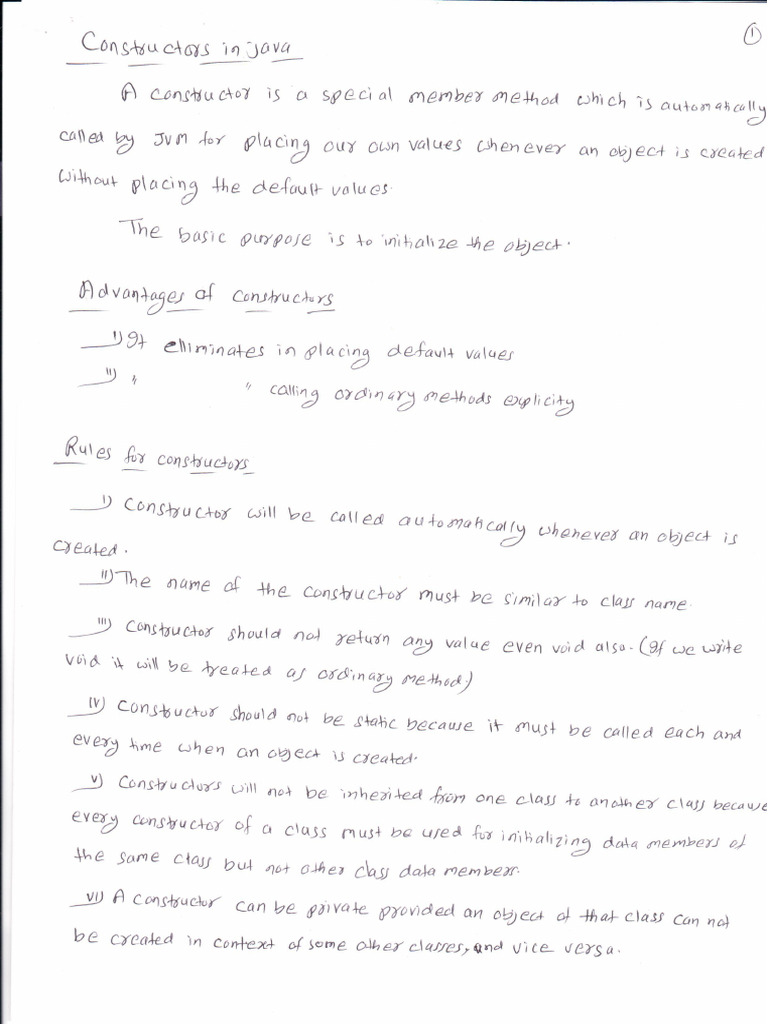 ①
Constructors in java
A constructor is a special member method which is automatically
called by JVM for placing our own values whenever an object is created
without placing the default values.
The basic purpose is to initialize the object.
Advantages of constructors
i) It elliminates in placing default values
ii) " " calling ordinary methods explicity
Rules for constructors
i) constructor will be called automatically whenever an object is
created.
ii) The name of the constructor must be similar to class name.
iii) constructor should not return any value even void also. (If we write
void it will be treated as ordinary method.)
iv) constructor should not be static because it must be called each and
every time when an object is created.
v) constructors will not be inherited from one class to another class because
every constructor of a class must be used for initializing data members of
the same class but not other class data members.
vi) A constructor can be private provided an object of that class can not
be created in context of some other classes, and vice versa.